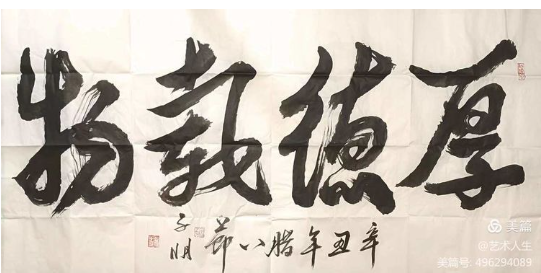 厚德载物
辛丑年腊八节
子明
美篇
@艺术人生
美篇号: 496294089